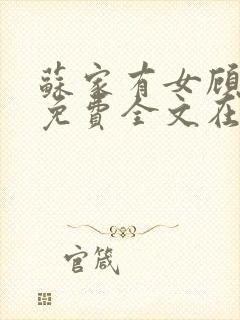 蘇家有女顧
免費全文在
官箴